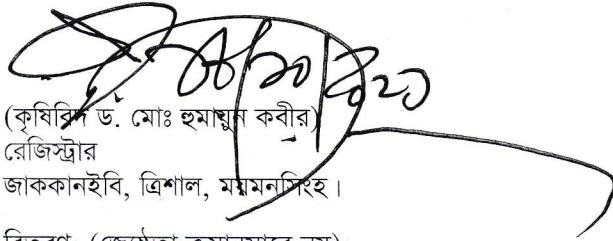 (কৃষিবিদ ড. মোঃ হুমায়ুন কবীর)
রেজিস্ট্রার
জাককানইবি, ত্রিশাল, ময়মনসিংহ।
বিতরণ (জ্যেষ্ঠতা